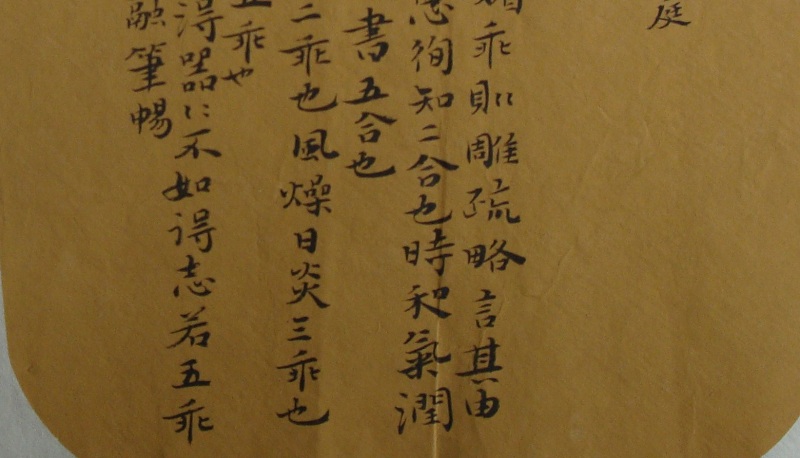 庭
乖則雕疏略言其由
惠徇知二合也時和氣潤
書五合也
二乖也風燥日炎三乖也
五乖也
得器〻不如得志若五乖
融筆暢